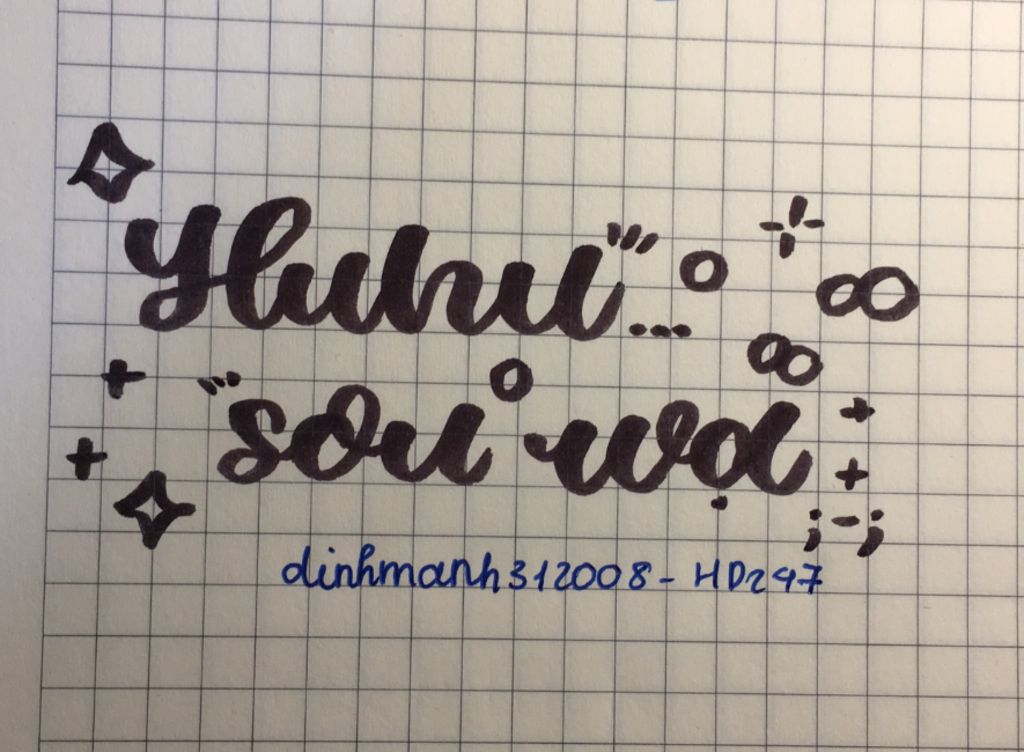 Huhu...
sou wạ
;-;
dinhmanh312008 - HD247